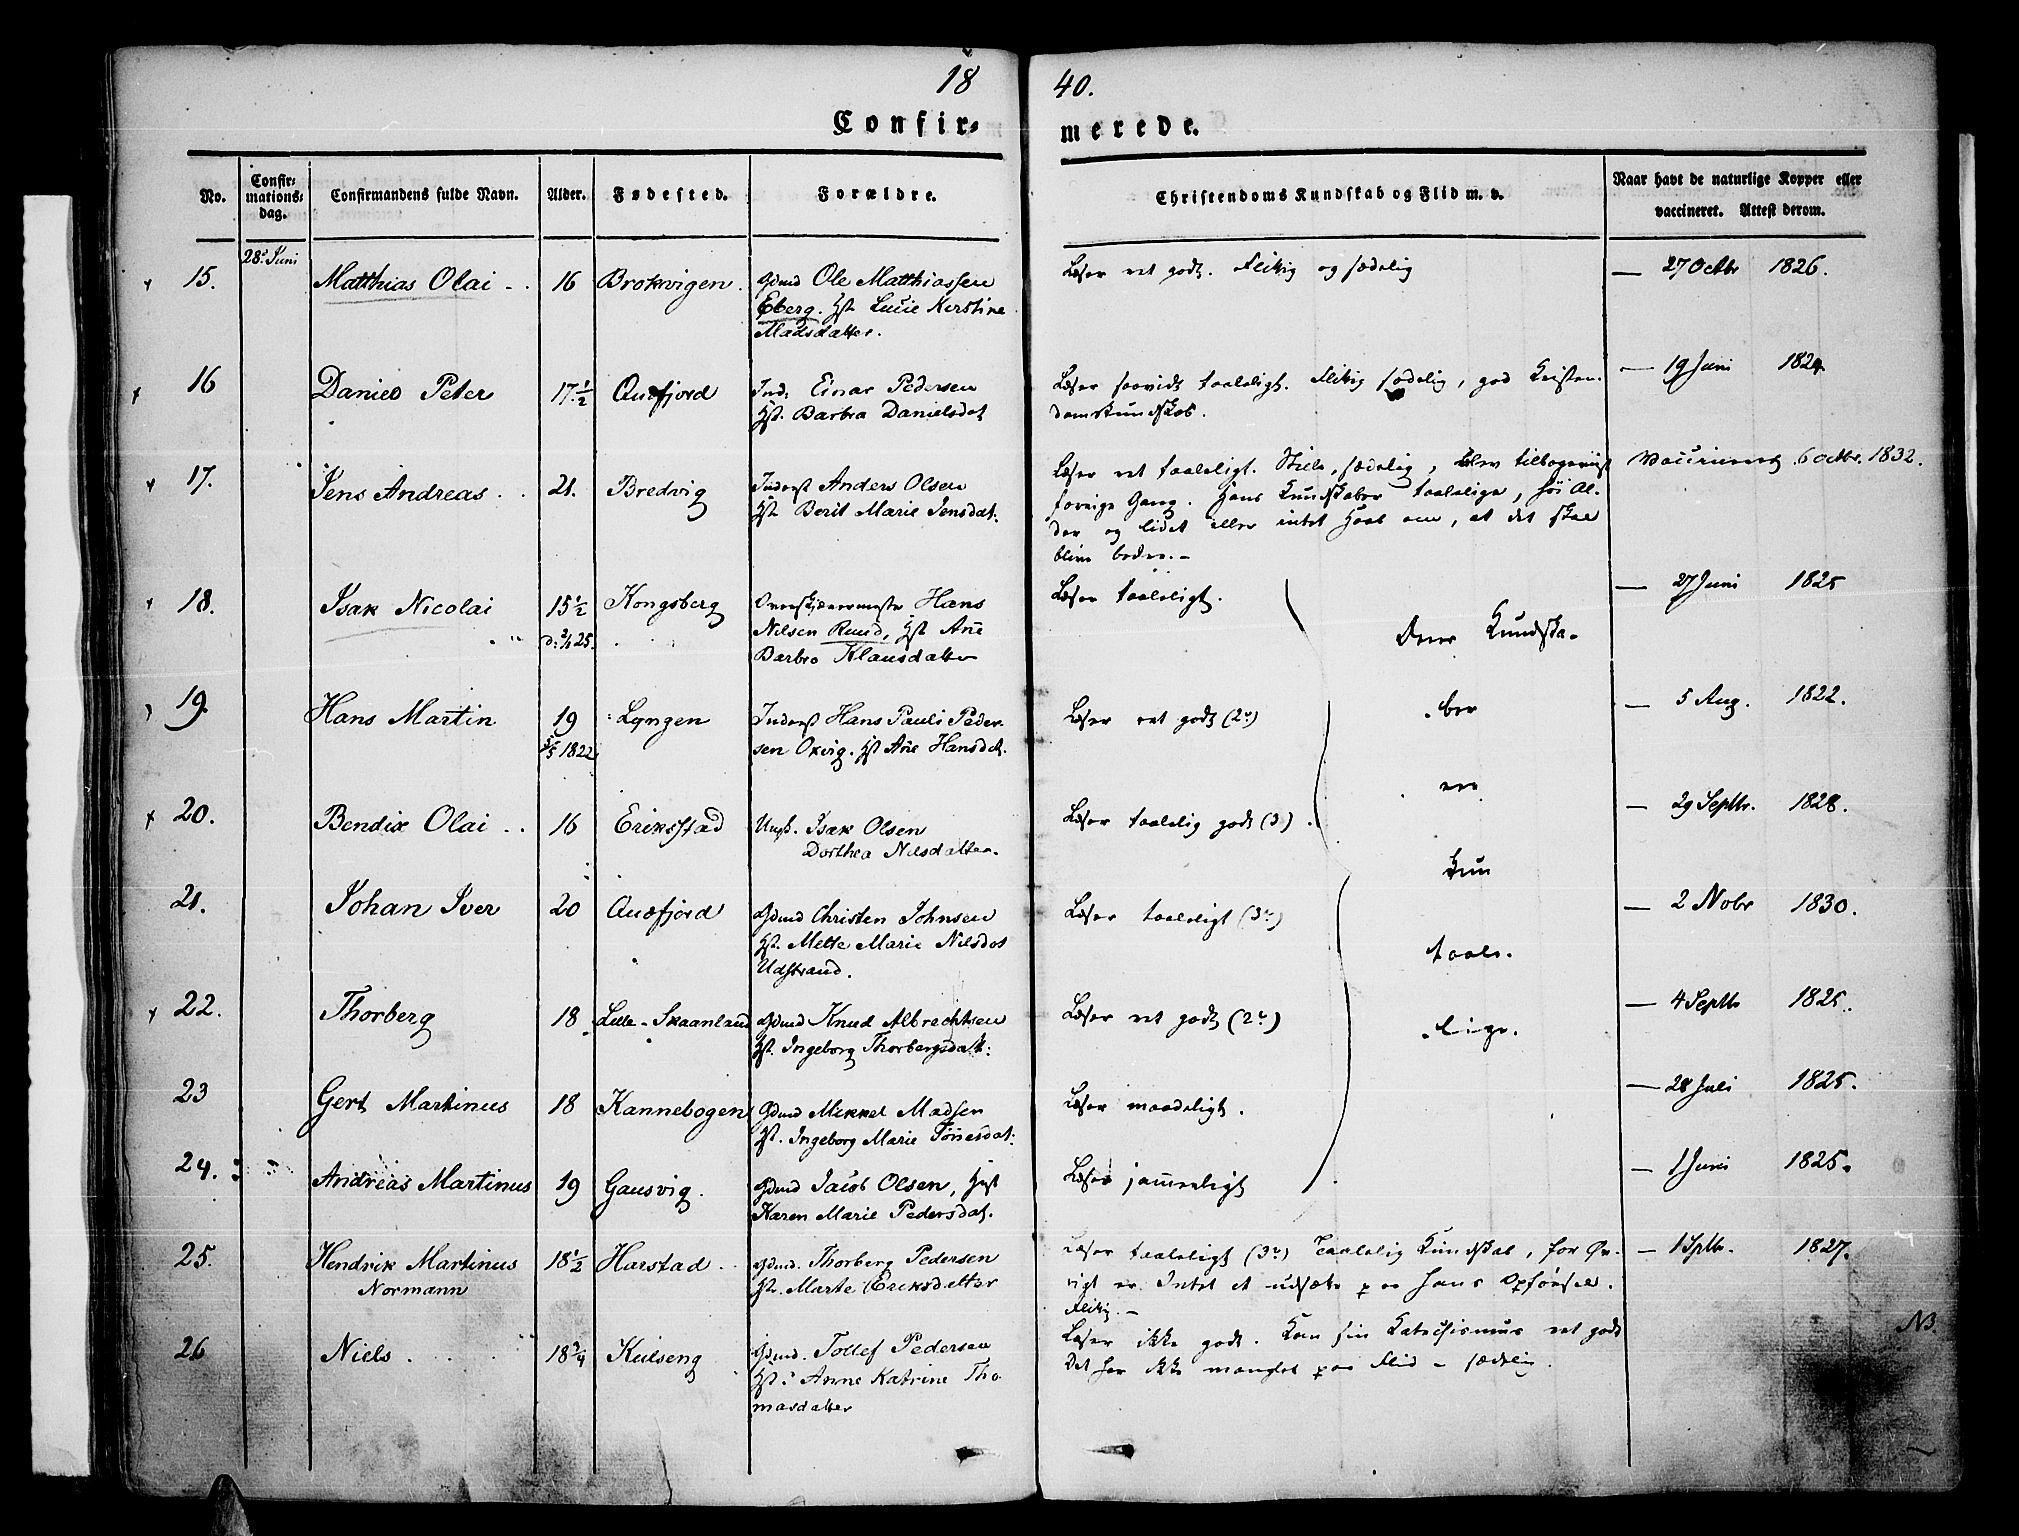 18 40.
Confir- merede.
No. Confirmations-dag. Confirmandens fulde Navn. Alder. Fødested. Forældre. Christendoms Kundskab og Flid m. v. Naar havt de naturlige Kopper eller vaccineret. Attest derom.
28de Juni
15. Matthias Olai 16 Brokvigen. Gdmd Ole Matthiassen Læser ret godt. Flitig og sædelig — 27 Octbr 1826.
Eberg. Hst. Lucie Kerstine
Madsdatter.
16 Daniel Peter 17 1/2 Quæfjord Ind: Einar Pedersen Læser saavidt taaleligt. Flitig sædelig, god Kristen- — 19 Juni 1824
Hst. Barbra Danielsdat domskundskab.
17. Jens Andreas 21. Bredvig Inderst Anders Olsen Læser ret taaleligt. Stille, sædelig, blev tilbageviist Vaccineret 6 octbr. 1832.
Hst. Berit Marie Jensdat: forrige Gang. Hans Kundskaber taalelige, høi Al-
der og lidet eller intet Haab om, at det skal
blive bedre. –
18. Isak Nicolai 15 1/2 Kongsberg Hans Læser taaleligt. — 27 Juni 1825
Nilsen Ruud, Hst Ane Deres Kundska-
Barbro Klausdatter
19. Hans Martin 19 Lyngen Inderst Hans Pauli Peder- Læser ret godt (2) -ber — 5 Aug. 1822.
5/5 1822 sen Oxvig. Hst Ane Hansdat.
ere
20. Bendix Olai 16 Erikstad Ungk. Isak Olsen Læser taalelig godt (3) — 29 Septbr. 1828.
Dorthea Nilsdatter.
kun
21. Johan Iver 20 Quæfjord Gdmd Christen Johnsen Læser taaleligt (3) — 2 Nobr 1830.
Hst. Mette Marie Nilsdat taale-
Udstrand.
22. Thorberg 18 Lille-Skaanland Gdmd Knud Albrechtsen Læser ret godt (2) -lige. — 4 Septbr 1825.
Hst. Ingeborg Thorbergsdatt:
23 Gert Martinus 18 Kannebogen Gdmd Mikkel Madsen Læser maadeligt. — 28 Juli 1825.
Hst. Ingeborg Marie Tønesdat:
24. Andreas Martinus 19 Gausvig. Gdmd Jacob Olsen, Hst Læser jammerligt — 1 Juni 1825.
Karen Marie Pedersdat.
25. Hendrik Martinus 18 1/2 Harstad Gdmd. Thorberg Pedersen Læser taaleligt (3) Taalelig Kundskab, for Øv- — 1 Septbr. 1827.
Normann Hst. Marte Eriksdatter rigt er Intet at udsætte paa hans Opførsel.
Flitig. –
26 Niels 18 3/4 Kulseng Gdmd. Tollef Pedersen Læser ikke godt. Kan sin Katechismus ret godt NB.
Hst: Anne Katrine Tho- Det har ikke manglet paa Flid – sædelig.
masdatter